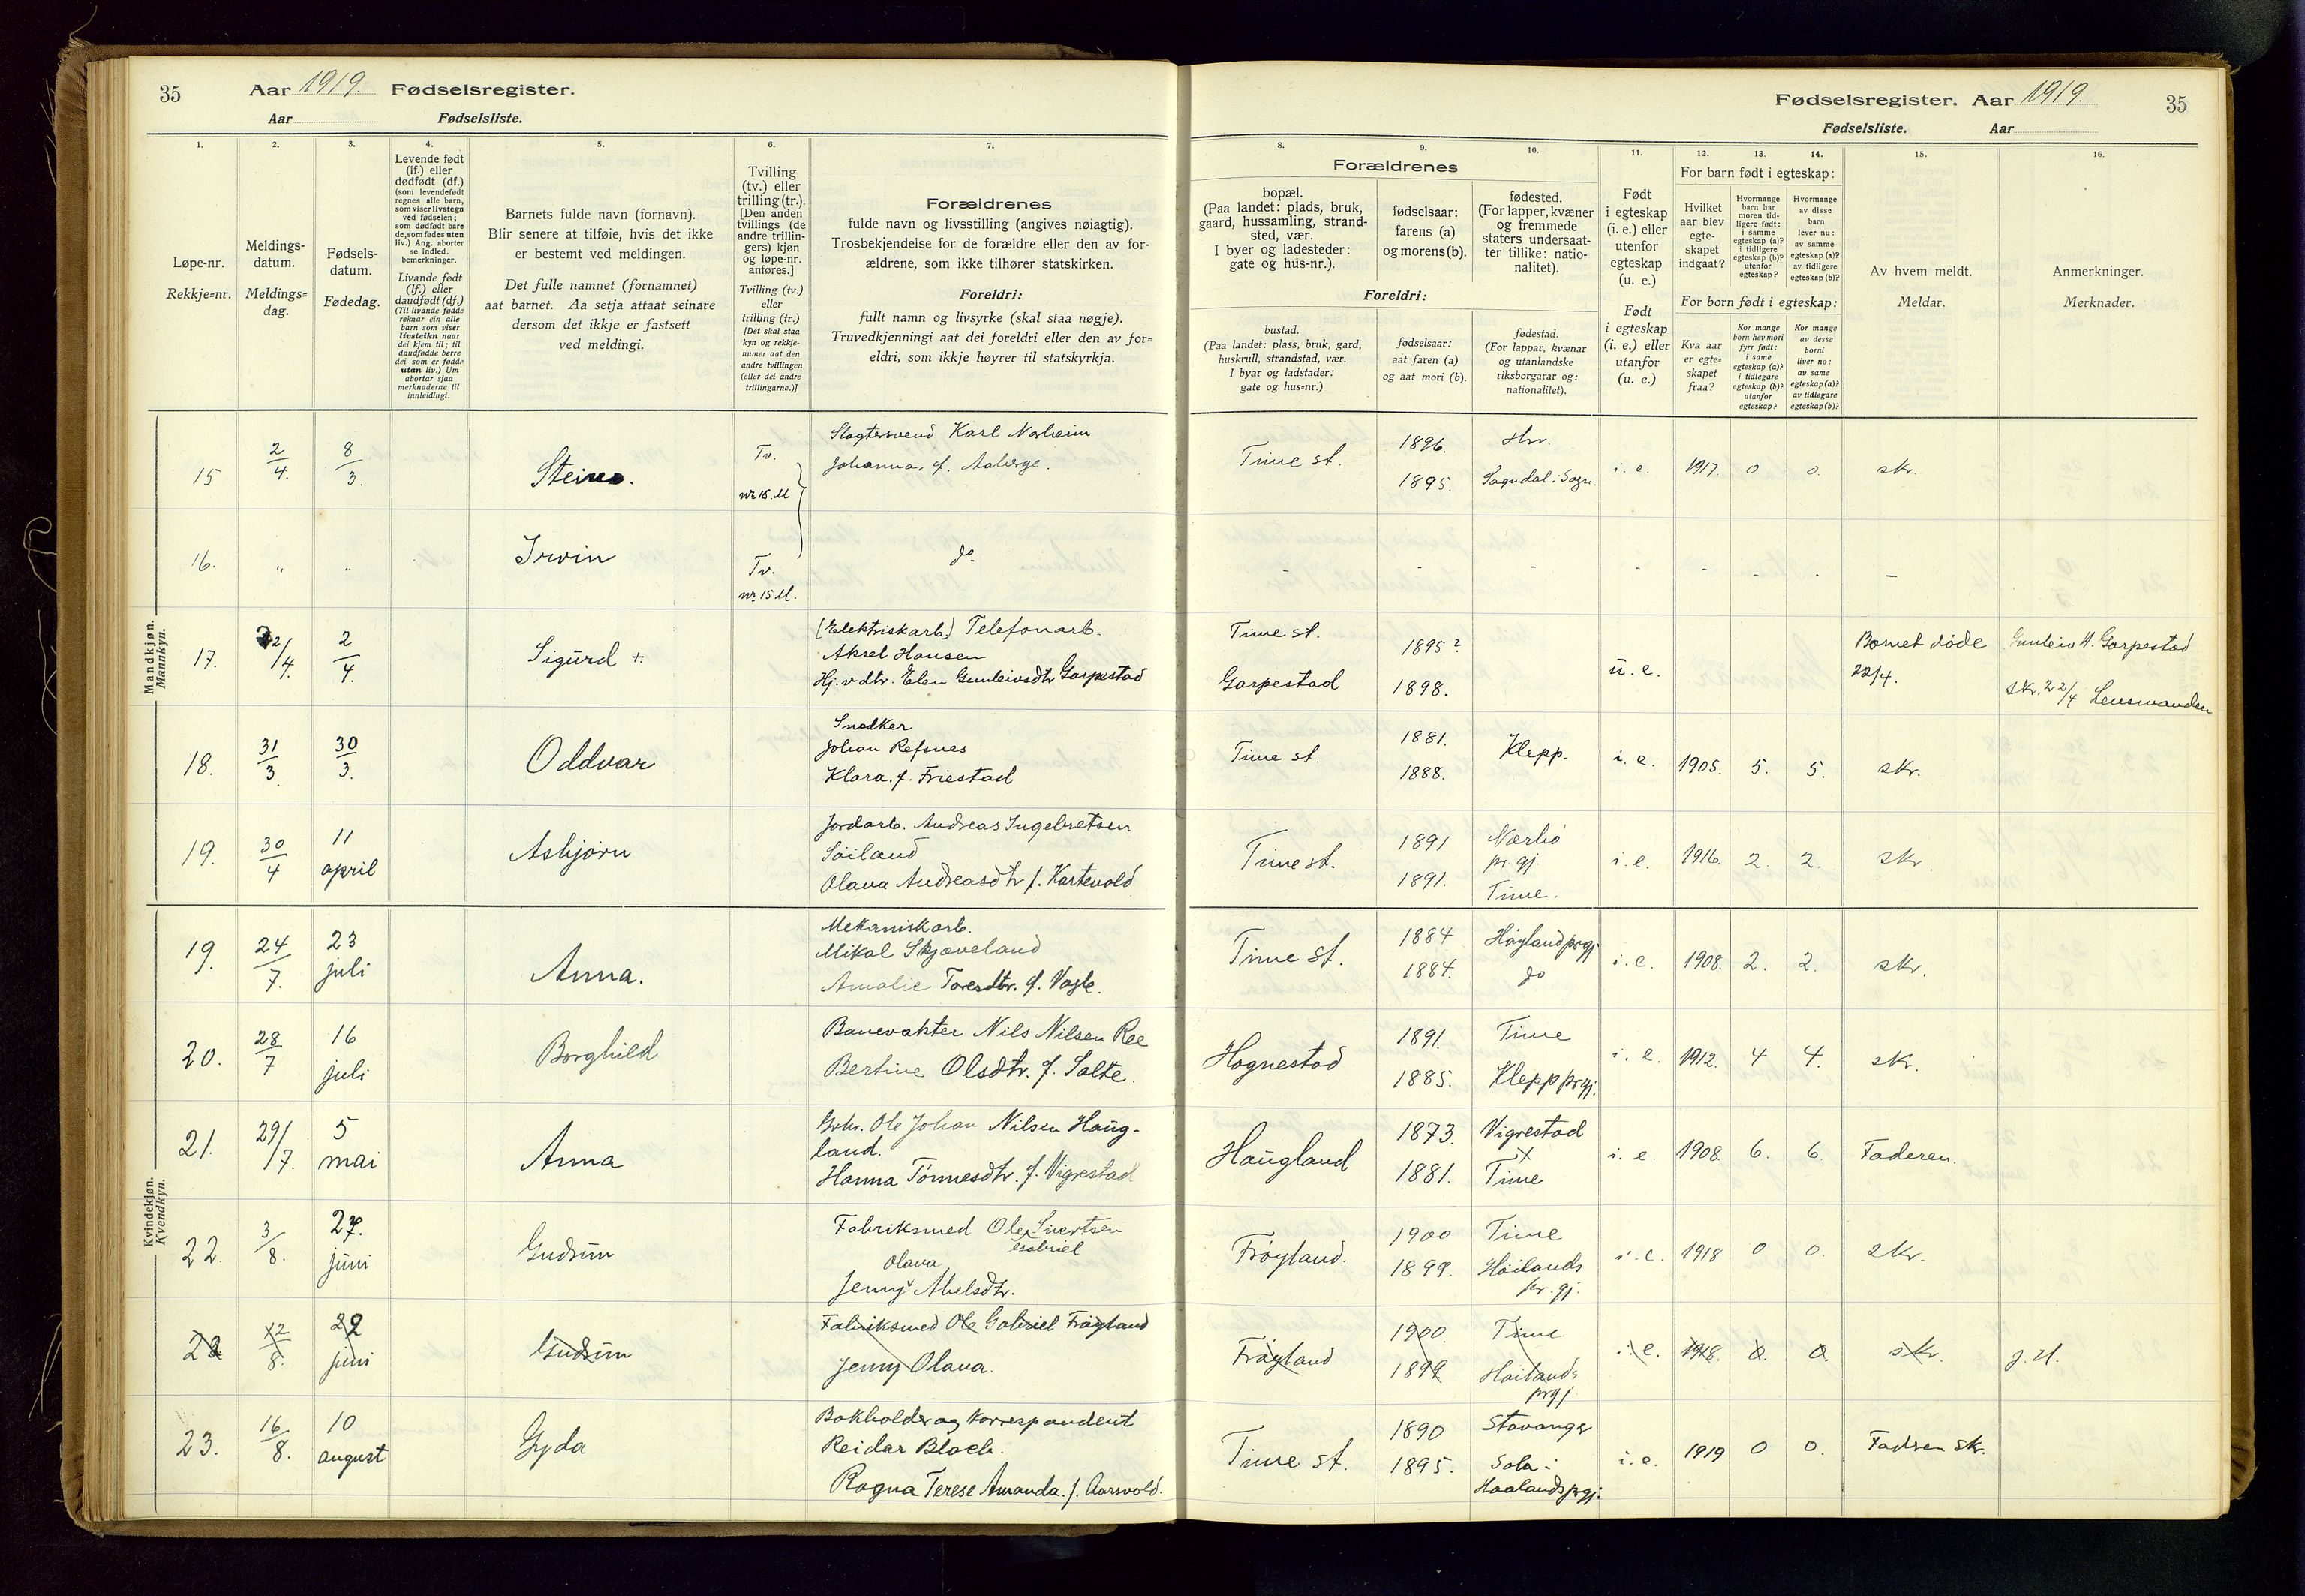 35 Aar 1919. Fødselsregister.
Aar Fødselsliste.
Fødselsregister. Aar 1919. 35
Fødselsliste. Aar
1. 2. 3. 4. 5. 6. 7.
Løpe-nr.
Rekkje=nr.
Meldings-
datum.
Meldings=
dag.
Fødsels-
datum.
Fødedag.
Levende født
(lf.) eller
dødfødt (df.)
(som levendefødt
regnes alle barn,
som viser livstegn
ved fødselen;
som dødfødt bare
de, som fødes uten
liv.) Ang. aborter
se indled.
bemerkninger.
Livande født
(lf.) eller
daudfødt (df.)
(Til livande fødde
reknar ein alle
barn som viser
livsteikn naar
dei kjem til; til
daudfødde berre
dei som er fødde
utan liv.) Um
abortar sjaa
merknaderne til
innleidingi.
Barnets fulde navn (fornavn).
Blir senere at tilføie, hvis det ikke
er bestemt ved meldingen.
Det fulle namnet (fornamnet)
aat barnet. Aa setja attaat seinare
dersom det ikkje er fastsett
ved meldingi.
Tvilling
(tv.) eller
trilling (tr.).
[Den anden
tvillings (de
andre trillin-
gers) kjøn
og løpe-nr.
anføres.]
Tvilling (tv.)
eller
trilling (tr.)
[Det skal staa
kyn og rekkje-
numer aat den
andre tvillingen
(eller dei andre
trillingarne.)]
Forældrenes
fulde navn og livsstilling (angives nøiagtig).
Trosbekjendelse for de forældre eller den av for-
ældrene, som ikke tilhører statskirken.
Foreldri:
fullt namn og livsyrke (skal staa nøgje).
Truvedkjenningi aat dei foreldri eller den av for=
eldri, som ikkje høyrer til statskyrkja.
8. 9. 10. 11. 12. 13. 14. 15. 16.
Forældrenes
bopæl.
(Paa landet: plads, bruk,
gaard, hussamling, strand-
sted, vær.
I byer og ladesteder:
gate og hus-nr.).
fødselsaar:
farens (a)
og morens (b).
fødested.
(For lapper, kvæner
og fremmede
staters undersaat-
ter tillike: natio-
nalitet).
Foreldri:
bustad.
(Paa landet: plass, bruk, gard,
huskrull, strandstad, vær.
I byar og ladstader:
gate og hus=nr.)
fødselsaar:
aat faren (a)
og aat mori (b).
fødestad.
(For lappar, kvænar
og utanlandske
riksborgarar og:
nationalitet).
Født
i egteskap
(i. e.) eller
utenfor
egteskap
(u. e.)
Født
i egteskap
(i. e.) eller
utanfor
(u. e.)
For barn født i egteskap:
Hvilket
aar blev
egte-
skapet
indgaat?
Hvormange
barn har
moren tid-
ligere født:
i samme
egteskap (a)?
i tidligere
egteskap (b)?
utenfor
egteskap?
Hvormange
av disse
barn
lever nu:
av samme
egteskap (a)?
av tidligere
egteskap (b)?
For born født i egteskap:
Kva aar
er egte=
skapet
fraa?
Kor mange
born hev mori
fyrr født:
i same
egteskap (a)?
i tidlegare
egteskap (b)?
utanfor
egteskap?
Kor mange
av desse
borni
liver no:
av same
egteskap (a)?
av tidlegare
egteskap (b)?
Av hvem meldt.
Meldar.
Anmerkninger.
Merknader.
Mandkjøn.
Mannkyn.
15 2/4. 8/3. Steinο. Tv. nr. 16. M Slagtersvend Karl Norheim
Johanna, f. Aaberge. Time st. 1896. 1895. Hvr. Sogndal i Sogn. i. e. 1917. 0 0. skr.
16. " " Irvin Tv. nr. 15 M. do. - - - - - - - -
17. 22/4. 2/4. Sigurd +. (Elektriskarb.) Telefonarb.
Aksel Hansen
Hj. v. dtr. Elen Gunleivsdtr Garpestad
Time st. Garpestad 1895? 1898. u. e. Barnet døde 22/4. Gunleiv A. Garpestad
skr. 22/4 Lensmanden
18. 31/3. 30/3. Oddvar Snedker
Johan Refsnes
Klara. f. Friestad
Time st. 1881. 1888. Klepp. i. e. 1905. 5. 5. skr.
19. 30/4 11 april Asbjørn Jordarb. Andreas Ingebretsen
Søiland
Olava Andreasdtr f. Kartevold
Time st. 1891 1891. Nærbø pr.gj. Time. i. e. 1916. 2. 2. skr
Kvindekjøn.
Kvendkyn.
19. 24/7. 23 juli Anna. Mekaniskarb.
Mikal Skjæveland
Amalie Toresdtr. f. Vagle.
Time st. 1884 1884. Høyland prgj. do i. e. 1908. 2. 2. skr.
20. 28/7 16 juli Borghild Banevakter Nils Nilsen Ree
Bertine Olsdtr. f. Salte.
Hognestad 1891. 1885. Time Klepp prgj. i. e. 1912. 4 4. skr.
21. 29/7. 5 mai Anna Gbr. Ole Johan Nilsen Haug-
land.
Hanna Tønnesdtr. f. Vigrestad
Haugland 1873. 1881. Vigrestad x Time i. e. 1908. 6. 6. Faderen.
22. 3/8. 27. juni Gudrun Fabriksmed Ole Sivertsen
Gabriel
Olava
Jenny Abelsdtr.
Frøyland. 1900 1899. Time Høilands pr. gj. i. e. 1918 0 0. skr.
22 12/8. 22 juni Gudrun Fabriksmed Ole Gabriel Frøyland
Jenny Olava.
Frøyland 1900. 1899 Time Høilands prgj i. e. 1918. 0. 0. skr.
23. 16/8. 10 august Gyda Bokholder og korrespondent
Reidar Bloch.
Ragna Terese Amanda. f. Aarsvold.
Time st. 1890 1895. Stavanger Sola i Haalands prgj. i. e. 1919 0 0. Fadren skr.